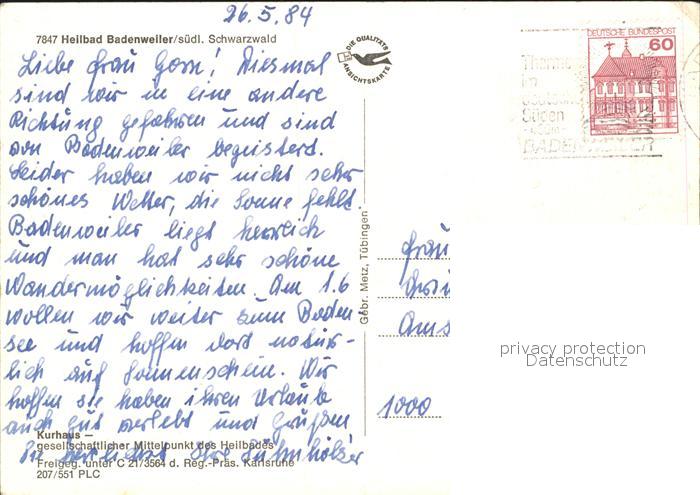 26.5.84
7847 Heilbad Badenweiler/südl. Schwarzwald
Liebe Frau Gorn! Diesmal
sind wir in eine andere
Richtung gefahren und sind
von Badenweiler begeistert.
Leider haben wir nicht sehr
schönes Wetter, die Sonne fehlt.
Badenweiler liegt herrlich
und man hat sehr schöne
Wandermöglichkeiten. Am 1.6
wollen wir weiter zum Boden
see und hoffen dort natür-
lich auf Sonnenschein. Wir
hoffen sie haben ihren Urlaub
auch gut verlebt und Grüßen
Sie herzlichst Ihre
Kurhaus —
gesellschaftlicher Mittelpunkt des Heilbades
Freigeg. unter C 21/3564 d. Reg.-Präs. Karlsruhe
207/551 PLC
DIE QUALITÄTS
ANSICHTSKARTE
Gebr. Metz, Tübingen
DEUTSCHE BUNDESPOST
60
Therme
im
Süden
BADENWEILER
Frau
1000
privacy protection
Datenschutz